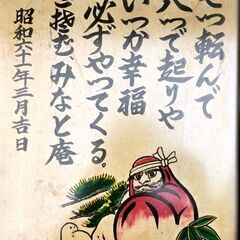 七つ転んで
八つで起りや
いつか幸福
必ずやってくる。
みなと庵
昭和六十一年三月吉日